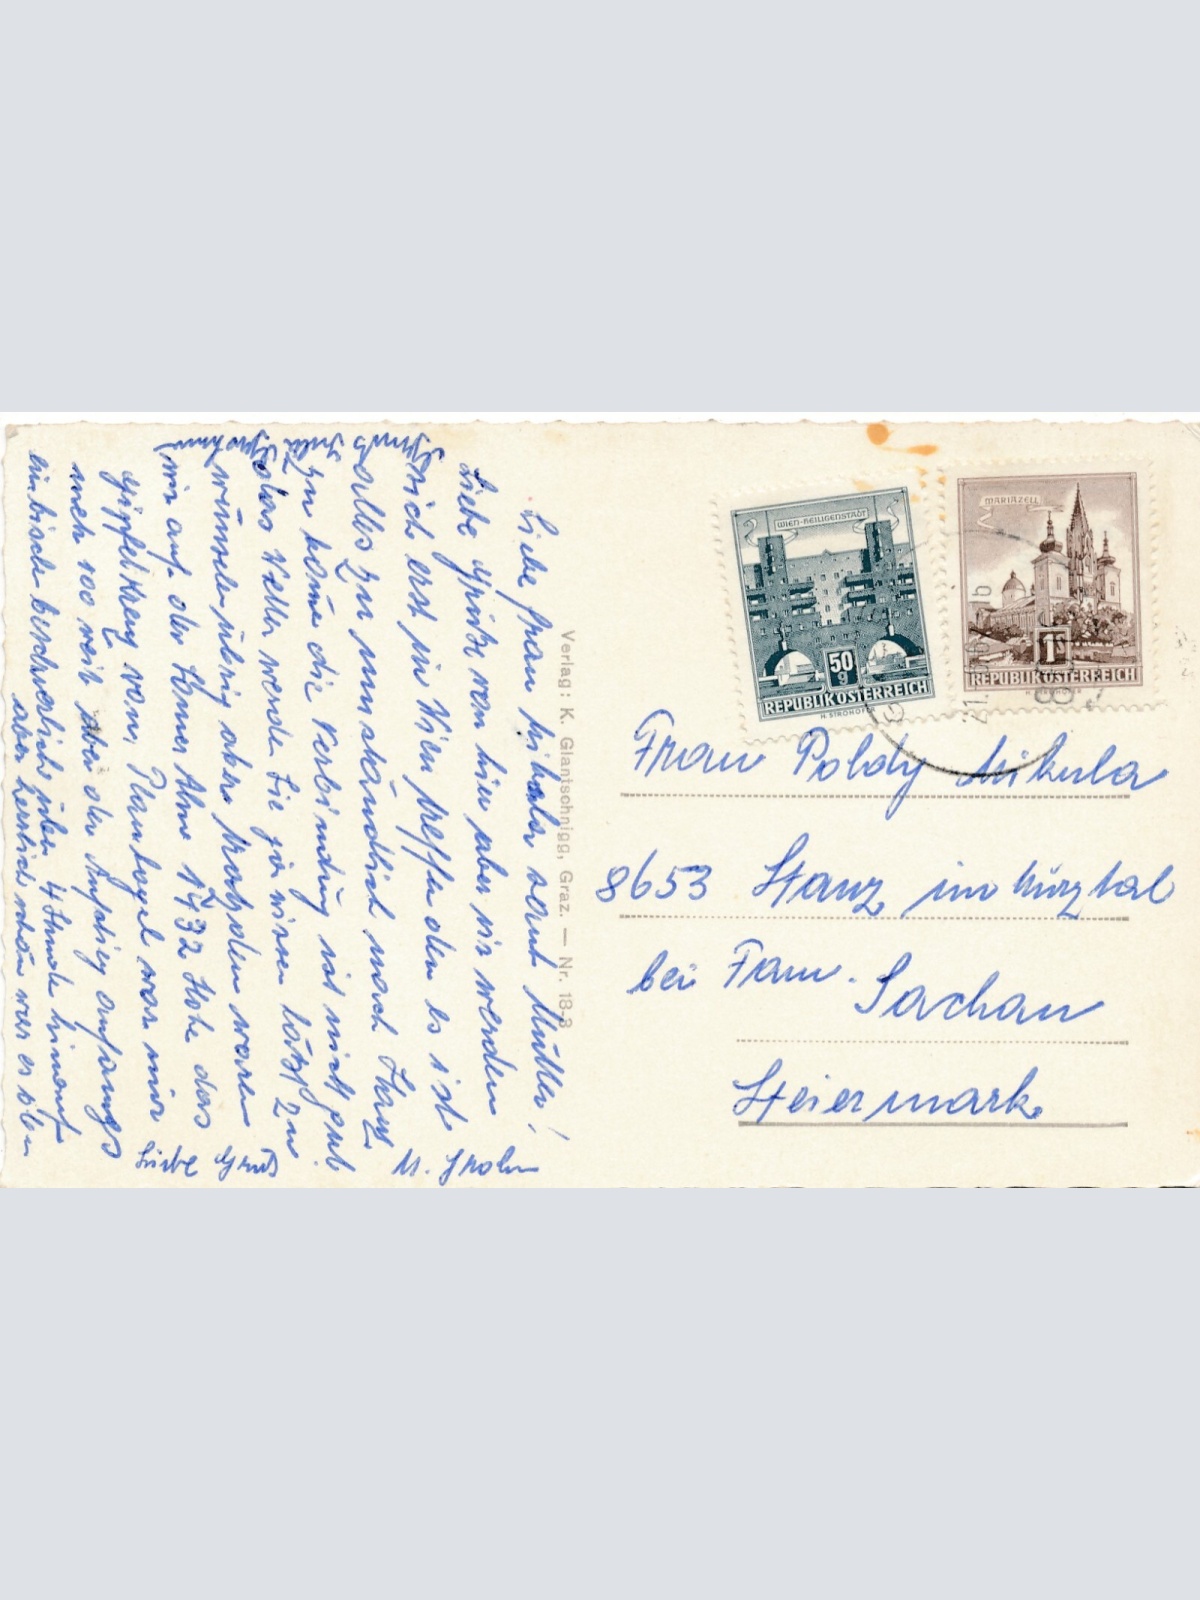 Liebe Frau Mikula samt Mutter!
Liebe Grüße von hier aber wir werden
uns erst in Wien treffen den es ist
alles zu umständlich nach Stanz
zu kome die Verbindung ist nicht gut
das Wetter werde Sie ja wissen lässt zu
wünschen übrig aber trotzdem waren
wir auf der Hohe das
Gipfelkreuz vom war mir
noch 100 weit Aber der Anstieg anfangs
ein bische beschwerlich über 4 Stunde hinauf
aber herrlich schön war es oben
Liebe Gruß
M. Grohm
Verlag: K. Glantschnigg, Graz. — Nr. 18-3
WIEN-HEILIGENSTADT
50 g
REPUBLIK ÖSTERREICH
H. STROHOFER
MARIAZELL
1 S
REPUBLIK ÖSTERREICH
H. STROHOFER
Frau Poldy Mikula
8653 Stanz im Mürztal
bei Fam. Sachau
Steiermark.